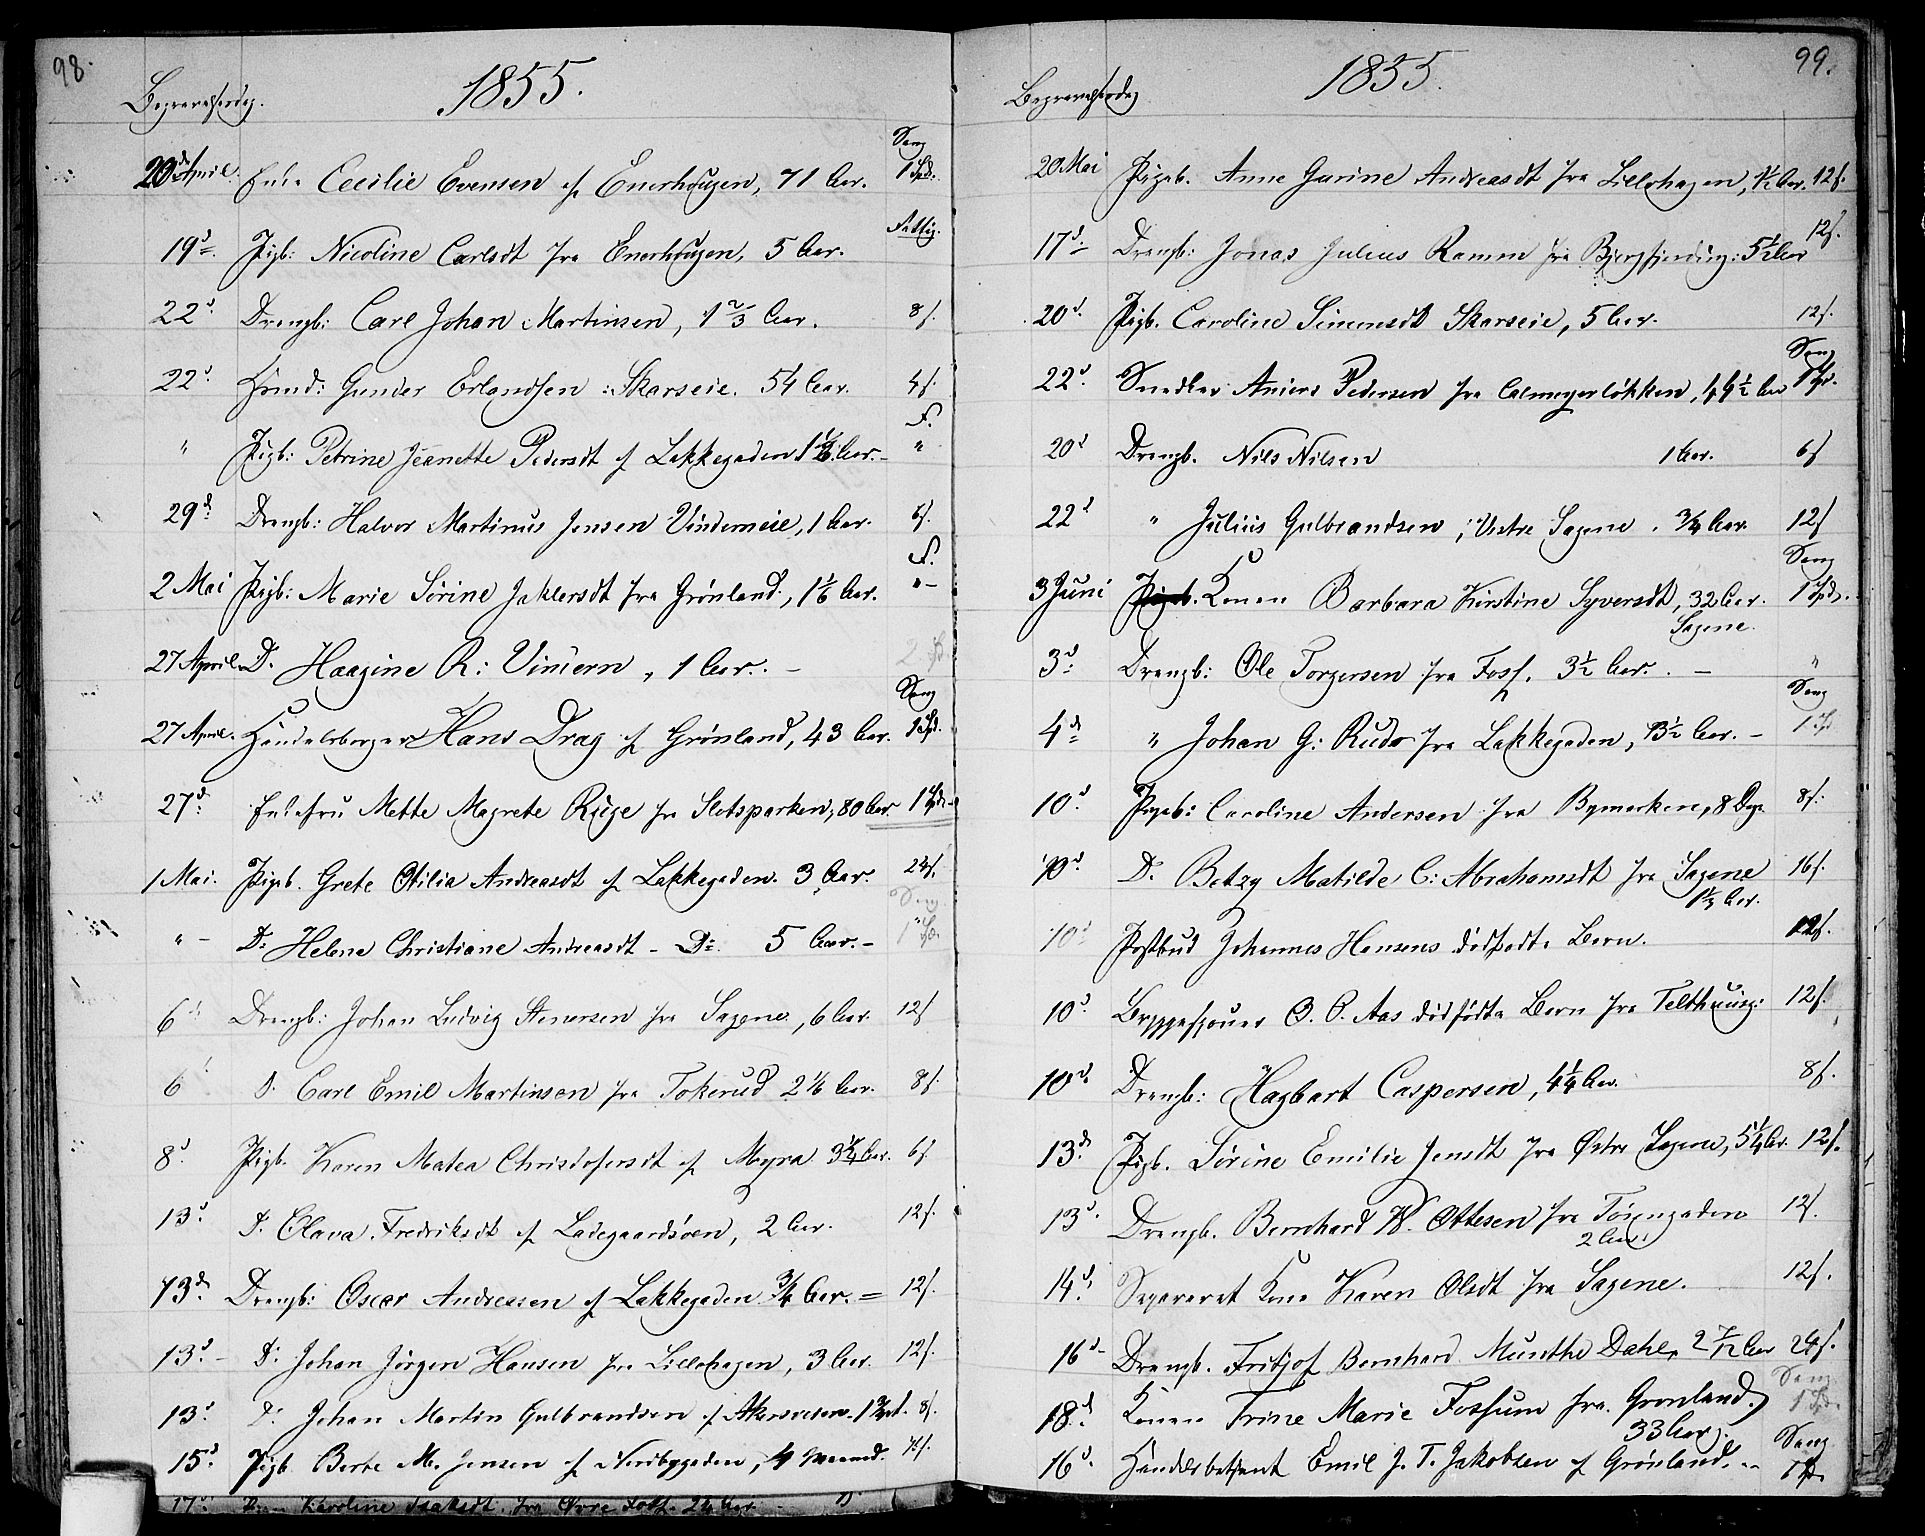 98.
1855.
Begravelsesdag.
20de April. Enke Cecilie Evensen af Enerhougen, 71 Aar. Sang 1 Spd.
19d. Pigb: Nicoline Carlsdt fra Enerhougen, 5 Aar. Fattig.
22d. Drengb: Carl Johan Martinsen, 1 2/3 Aar. 8 s.
22d. Huusm: Gunder Erlandsen Skarseie. 54 Aar. 4 s.
" Pigb: Petrine Jeanette Pedersdt af Lakkegaden Aar. F. "
29d. Drengb: Halvor Martinus Jensen Vindemeie, 1 Aar. 6 s.
2 Mai Pigb: Marie Sörine Jaklersdt fra Grönland, 1 1/6 Aar. F. "
27 April. D. Haagine R: Vindern, 1 Aar.
27 April. Handelsborger Hans Drag af Grönland, 43 Aar. Sang 1 Spd.
27d. Enkefru Mette Magrete Ruge fra Slotsparken, 80 Aar. 1 Spd.
1 Mai. Pigeb. Grete Otilia Andreasdt af Lakkegaden. 3 Aar. 24 s.
" D: Helene Christiane Andreasdt - Do. 5 Aar. Sang 1 Spd.
6d Drengb: Johan Ludvig Stenersen fra Sagene, 6 Aar. 12 s
6 D. Carl Emil Martinsen fra Tokerud 2 1/6 Aar. 8 s.
8d. Pigb. Karen Matea Christofersdt af Myra 3 1/4 Aar. 6 s
13d. D. Olava Fredriksdt af Ladegaardsöen, 2 Aar. 12 s.
13d. Drengb: Oscar Andreasen af Lakkegaden 3/4 Aar. 12 s.
13d. D. Johan Jörgen Hansen fra Lillohagen, 3 Aar. 12 s.
13d D. Johan Martin Gulbrandsen af Akersveien. 8 s.
15d. Pigb. Berte M. Jensen af Nordbygaden, 4 Maaned.
17d. Karoline Isaksdt. fra Övre Foss. 2 1/4 Aar.
99.
1855.
Begravelsesdag
20 Mai Pigeb. Anne Gurine Andreasdt fra Lillohagen, 1 1/2 Aar. 12 s.
17d Drengb: Jonas Julius Ramm fra Bjergfjerding: 5 1/2 Aar 12 s.
20d. Pigb. Caroline Simensdt Skarseie, 5 Aar. 12 s.
22d. Snedker Anders Pedersen fra Calmeyerlökken, 49 1/2 Aar Sang 1 Spd.
20d Drengb. Nils Nilsen 1 Aar. 6 s
22d " Julius Gulbrandsen, Vestre Sagene. 3/4 Aar. 12 s
3 Juni Konen Barbara Kirstine Syversdt, 32 Aar. Sang 1 Spd.
Sagene.
3d. Drengb: Ole Torgersen fra Foss, 3 1/2 Aar. "
4d " Johan G: Rude fra Lakkegaden, 13 1/2 Aar. Sang 1 Spd
10d. Pigeb: Caroline Andersen fra Bymarken, 8 Dage 8 s.
10d. D. Betzy Matilde C: Abrahamsdt fra Sagene 16 s.
1 1/3 Aar.
10d Postbud Johannes Hansens dödfödte Barn. 12 s.
10d. Bryggesjouer O. O. Aas dödfödte Barn fra Telthuusg: 12 s.
10d. Drengb: Hagbart Caspersen, 4 1/4 Aar. 8 s.
13d. Pigb. Sörine Emilie Jensdt fra Østre Sagene, 5 1/4 Aar 12 s.
13d. Drengb. Bernhard W. Ottesen fra Töiengaden 12 s.
2 Aar.
14d. Separeret Kone Karen Olsdt fra Sagene. 12 s.
16d Drengb. Fritjof Bernhard Munthe Dahl, 2 7/12 Aar 24 s.
18d. Konen Trine Marie Fossum fra Grönland, Sang 1 Spd.
33 Aar.
16d. Handelsbetjent Emil J. T. Jakobsen af Grönland. Sang 1 Spd.